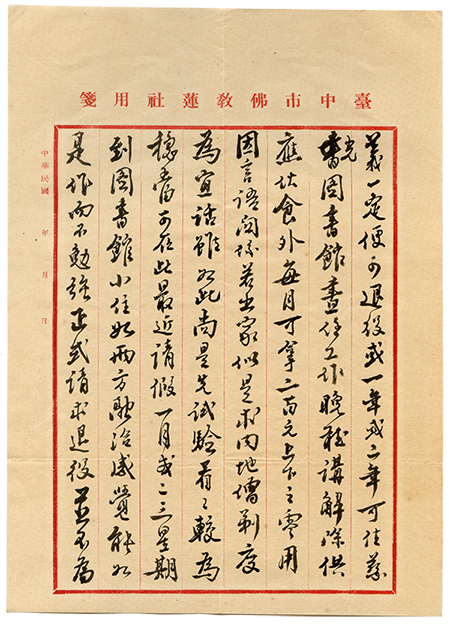 臺中市佛教蓮社用箋
義一定便可退役或一年或二年可住慈
光圖書館晝任工作晚聽講解除供
應伙食外每月可拿二百元上下之零用
因言語關係若出家似是求內地僧剃度
為宜話雖如此尚是先試驗看々較為
穩當可在此最近請假一月或二三星期
到圖書館小住如兩方融洽感覺能如
是作而不勉強正式請求退役並不為
中華民國 年 月 日